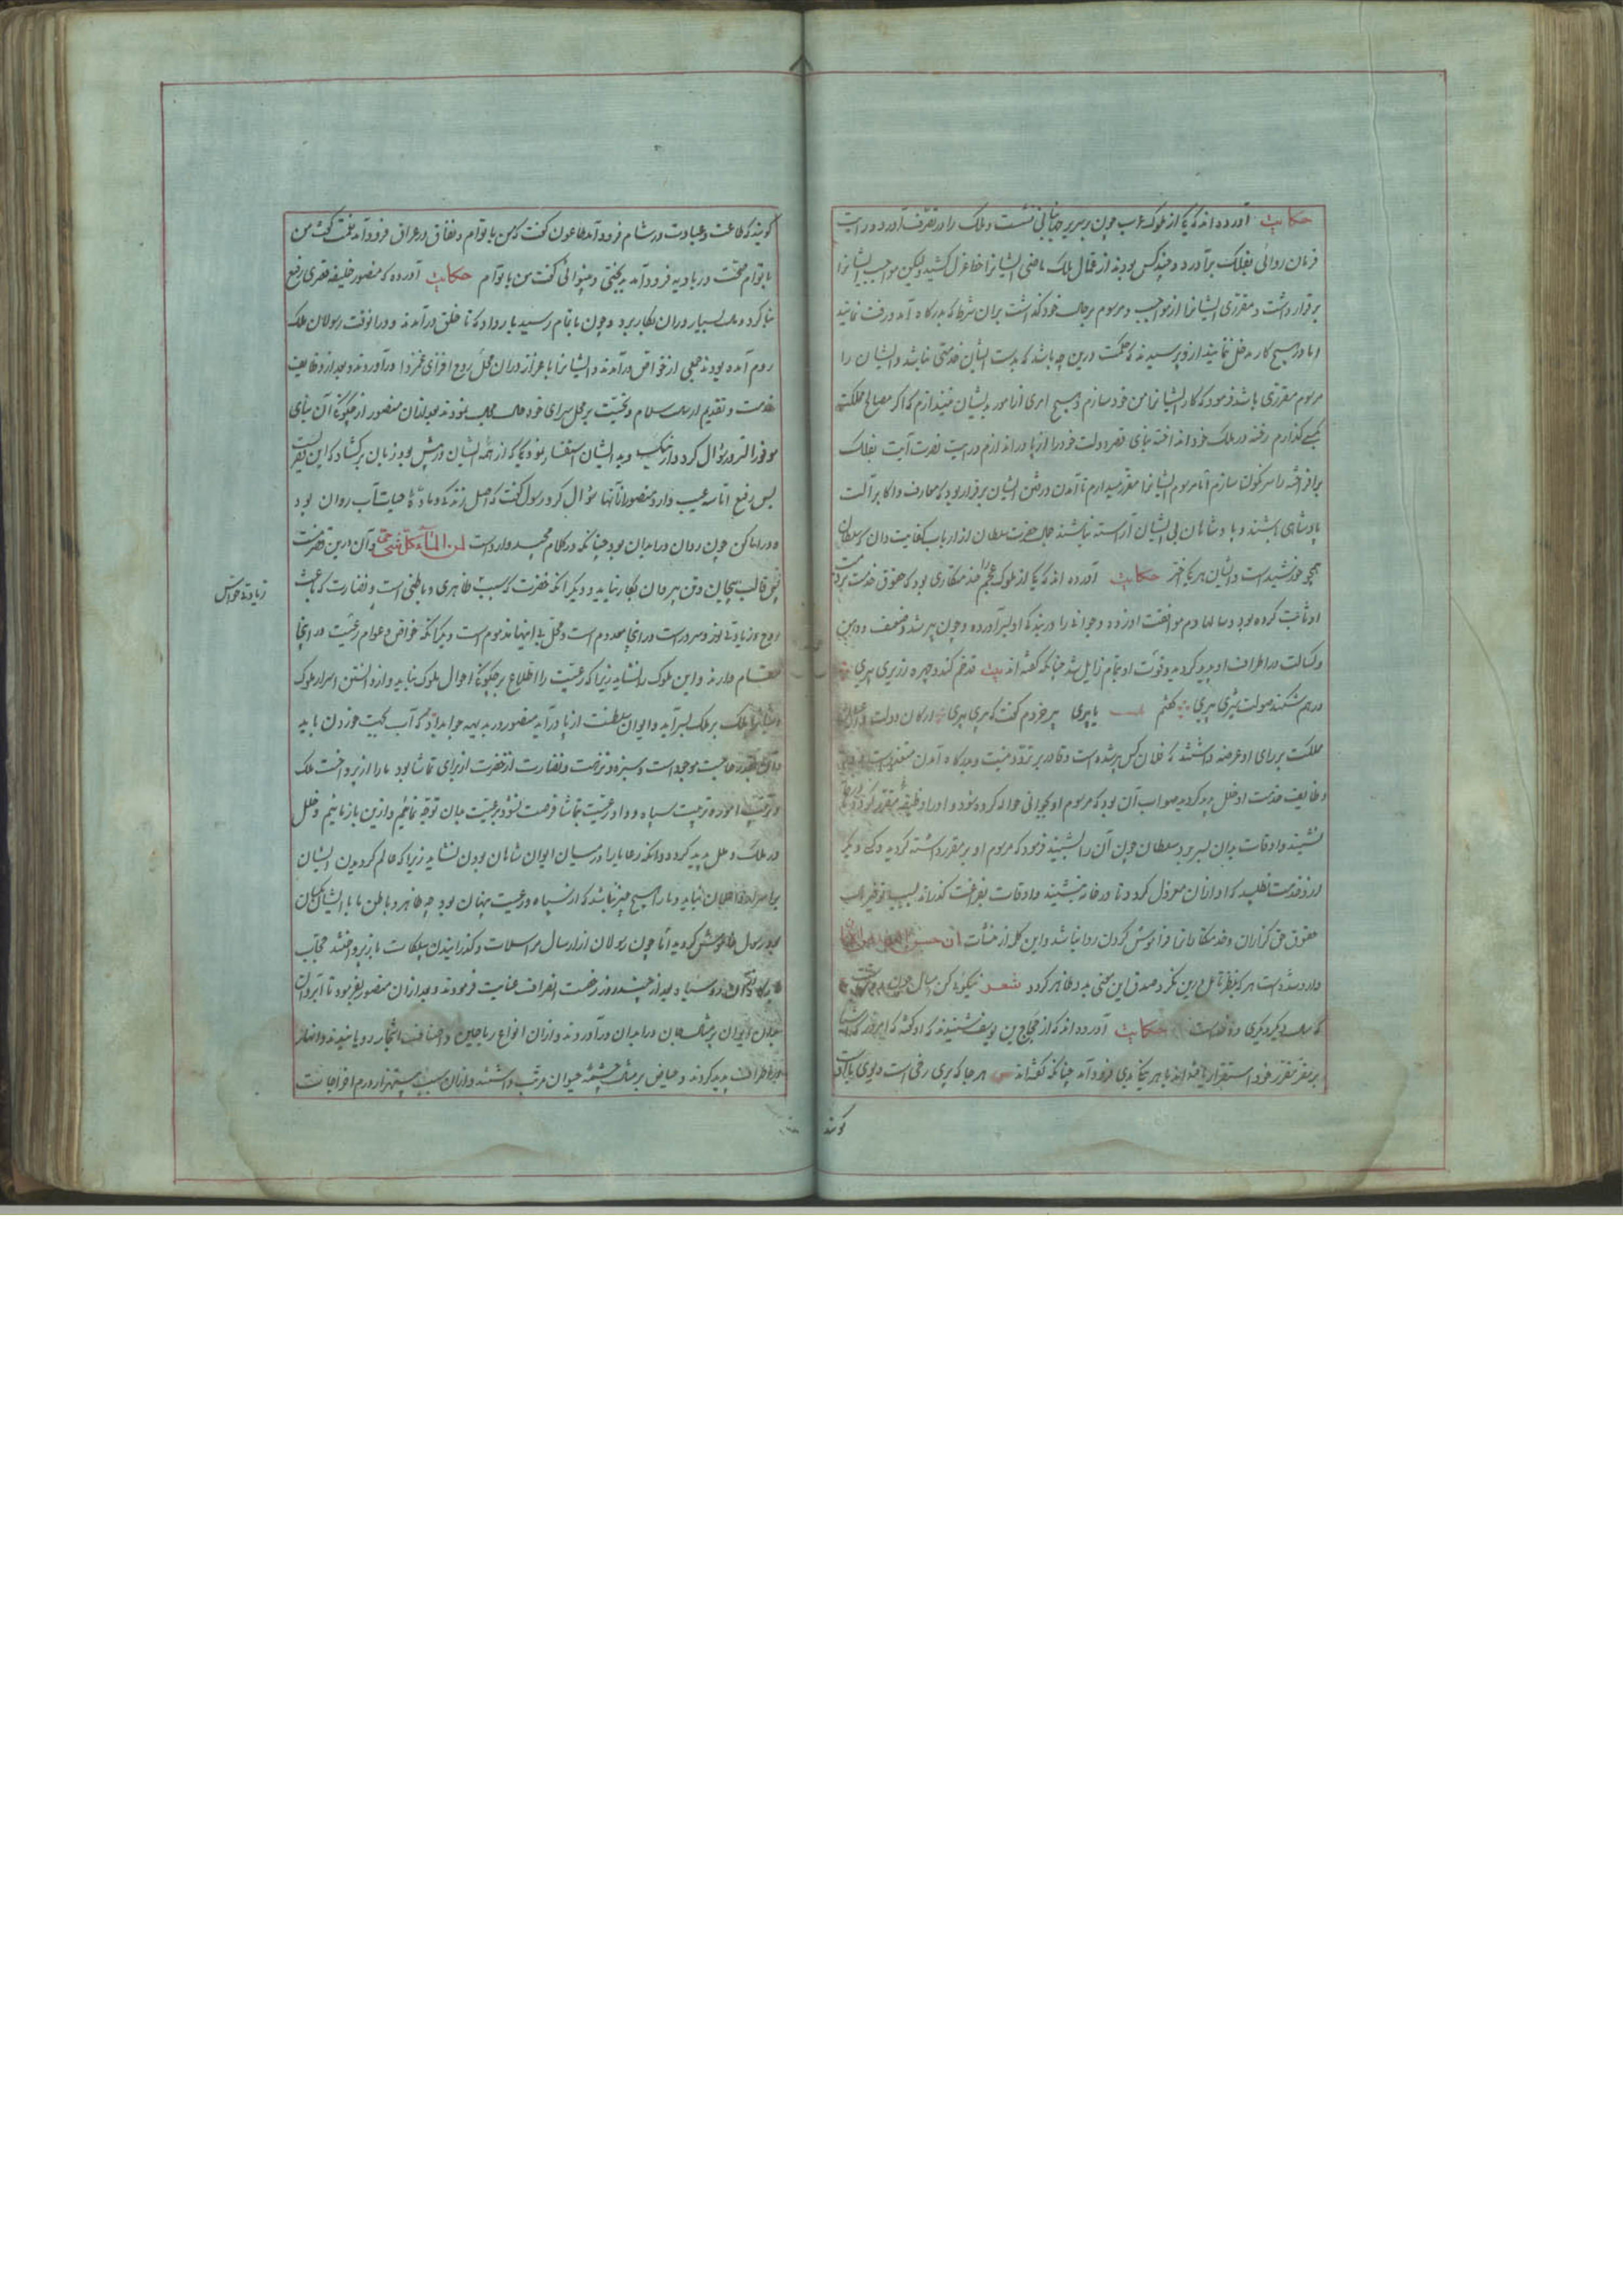 حکایت آورده اند که یکی از ملوک عرب چون بر سریر جهانبانی نشست و ملک را در تصرف آورد و رایت
فرمان روائی بفلک برآورد و چند کس بودند از عمال ملک ماضی ایشانرا خط عزل کشید ولیکن مواجب ایشانرا
برقرار داشت و مقرری ایشانرا از مواجب و مرسوم برحال خود گذاشت بران شرط که بدرگاه آمد و رفت نمایند
اما در هیچ کار مدخل ننمایند ازو پرسیدند که حکمت درین چه باشد که بدست ایشان خدمتی نباشد و ایشان را
مرسوم مقرری باشد فرمود که کار ایشانرا من خود سازم و هیچ امری از امور بدیشان نیندازم که اگر مصالح مملکت
بکسی گذارم رخنه در ملک خود انداخته بنای قصر دولت خود را از پا در اندازم و رایت نصرت آیت بفلک
برافراخته را سرنگون سازم اما مرسوم ایشانرا مقرر میدارم تا آمدن و رفتن ایشان برقرار بود که معارف و اکابر آلت
پادشاهی باشند و پادشاهان بی ایشان آراسته نباشند جمال حضرت سلطان از ارباب کفایت دان که سلطان
همچو خورشید است و ایشان هر یکی اختر حکایت آورده اند که یکی از ملوک عجم را خدمتکاری بود که حقوق خدمت بر ذمت
او ثابت کرده بود و سالها دم موافقت او زده و جوانی را در بندگی او بسر آورده و چون پیر شد و ضعف و وهن
و کسالت در اطراف او پدید گردید و قوت او بتمام زایل شد چنانکه گفته اند بیت قد خم کند و چهره زریری پیری
درهم شکند صولت شیری پیری گفتم یا پیری پیر خردم گفت که پیری پیری ارکان دولت و اعیان
مملکت بر رای او عرضه داشتند که فلان کس پیر شده است و قادر بر تردد نیست و بدرگاه آمدن متعذر است و در
وظایف خدمت او خلل پدید گردیده صواب آن بود که مرسوم او بجوانی حواله کرده شود و او را وظیفه مقرر گردد
نشیند و اوقات بدان بسر برد سلطان چون آن را شنید فرمود که مرسوم او بر مقرر داشته گردید و کسی دیگر
ازو خدمت نطلبد که او از آن معزول گردد تا در خانه بنشیند و اوقات بفراغت گذراند بسبب توقیر
حقوق حق گزاران و خدمتکارانرا فراموش کردن روا نباشد و این کلمه از منشآت ان حسن العهد من الایمان
وارد شده است هر که بنظر تامل درین نگرد صدق این معنی بدو ظاهر گردد شعر نیکوئی کن امسال چون
که سال دیگر دیگری حکایت آورده اند که از حجاج بن یوسف شنیدند که او گفته که امروز که
بر مقر تقرر خود استقرار یافته اند با هر یکی ندیمی فرود آمد چنانکه گفته اند هر جا که پری رخی است دیوی با اوست
گویند
گویند که طاعت و عبادت در شام فرود آمد طاعون گفت که من با توام و نفاق در عراق فرود آمد نعمت گفت من
با توام صحت در بادیه فرود آمد بدبختی و بینوائی گفت من با توام حکایت آورده که منصور خلیفه قصری رفیع
بنا کرد و مال بسیار در آن بکار برد و چون باتمام رسید بار داد که تا خلق درآمدند و در آنوقت رسولان ملک
روم آمده بودند جمعی از خواص درآمدند و ایشانرا باعزاز در آن محل روح افزای غمزدا درآوردند و بعد از وظایف
خدمت و تقدیم سلام و تحیت بر محل سرای خود نمودند بعد از آن منصور از چگونگی آن بنای
موفور السرور سؤال کرد و از نیک و بد ایشان استفسار نمود یکی که از همه ایشان در پیش بود زبان برگشاد که این قصریست
بس رفیع اما سه عیب دارد منصور از آنها سؤال کرد رسول گفت که اصل زندگی و ماده حیات آب روان بود
و در اماکن چون روان در ابدان بود چنانکه در کلام مجید وارد است من الماء کل شئ حی و آن درین قصر نیست
پس قالب بیجان و تن بیروان بکار نیاید و دیگر آنکه خضرت که سبب ظاهری و باطنی است و نضارت که باعث
روح و زیادتی نور و سرور است در اینجا معدوم است و محل بی اینها مذموم است دیگر آنکه خواص و عوام رعیت در اینجا
مقام دارند و این ملوک را نشاید زیرا که رعیت را اطلاع بر چگونگی احوال ملوک نباید و از دانستن اسرار ملوک
ملک بر ملک بسر آید و ایوان سلطنت از پا درآید منصور در بدیهه جواب داد که آب بجهت خوردن باید
و آن بقدر حاجت موجود است و سبزه و نزهت و نضارت از خضرت از برای تماشا بود ما را از پرداخت ملک
و ترتیب امور و تربیت سپاه و داد رعیت بتماشا فرصت نشود بر رعیت بدان توجه نمائیم و ازین باز مانیم خلل
در ملک و ملل پدید گردد و آنکه رعایا را در میان ایوان شاهان بودن نشاید زیرا که عالم گردیدن ایشان
بر اسرار پادشاهان نباید و ما را هیچ چیز نباشد که از سپاه و رعیت پنهان بود چه ظاهر و باطن ما با ایشان یکسان
بود رسول خاموش گردید اما چون رسولان از ارسال مراسلات و گذرانیدن بیلکات باز پرداختند
بعد از چند روز رخصت انصراف عنایت فرمودند و بعد از آن منصور بفرمود تا آب روان
ایوان بر مثال جان در ابدان درآوردند و از آن انواع ریاحین و اصناف اشجار رویانیدند و انهار
در اطراف پدید کردند و حیاض بر مثال چشمه حیوان مرتب داشتند و از آن سبب هزار درم اخراجات
زیادتی حواس